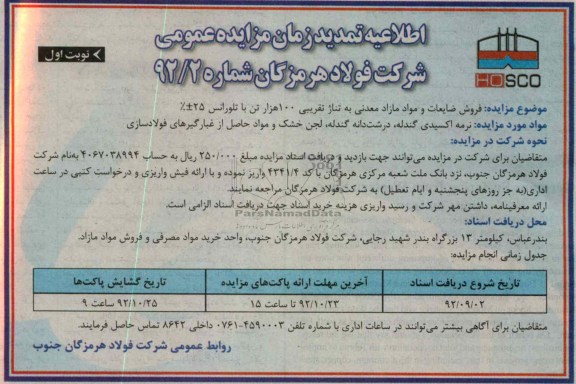 اطلاعیه تمدید زمان مزایده عمومی
شرکت فولاد هرمزگان شماره ۹۲/۲
نوبت اول
HOSCO
موضوع مزایده: فروش ضایعات و مواد مازاد معدنی به تناژ تقریبی ۱۰۰هزار تن با تلورانس ۲۵±٪
مواد مورد مزایده: نرمه اکسیدی گندله، درشت‌دانه گندله، لجن خشک و مواد حاصل از غبارگیرهای فولادسازی
نحوه شرکت در مزایده:
متقاضیان برای شرکت در مزایده می‌توانند جهت بازدید و دریافت اسناد مزایده مبلغ ۲۵۰/۰۰۰ ریال به حساب ۴۰۶۷۰۳۸۹۹۴ به‌نام شرکت
فولاد هرمزگان جنوب، نزد بانک ملت شعبه مرکزی هرمزگان با کد ۴۳۴۱/۴ واریز نموده و با ارائه فیش واریزی و درخواست کتبی در ساعت
اداری(به جز روزهای پنجشنبه و ایام تعطیل) به شرکت فولاد هرمزگان مراجعه نمایند.
ارائه معرفینامه، داشتن مهر شرکت و رسید واریزی هزینه خرید اسناد جهت دریافت اسناد الزامی است.
ParsNamadData
محل دریافت اسناد:
بندرعباس، کیلومتر ۱۳ بزرگراه بندر شهید رجایی، شرکت فولاد هرمزگان جنوب، واحد خرید مواد مصرفی و فروش مواد مازاد.
جدول زمانی انجام مزایده:
تاریخ شروع دریافت اسناد آخرین مهلت ارائه پاکت‌های مزایده تاریخ گشایش پاکت‌ها
۹۲/۰۹/۰۲ ۹۲/۱۰/۲۳ تا ساعت ۱۵ ۹۲/۱۰/۲۵ ساعت ۹
متقاضیان برای آگاهی بیشتر می‌توانند در ساعات اداری با شماره تلفن ۴۵۹۰۰۰۳-۰۷۶۱ داخلی ۸۶۴۲ تماس حاصل فرمایند.
روابط عمومی شرکت فولاد هرمزگان جنوب